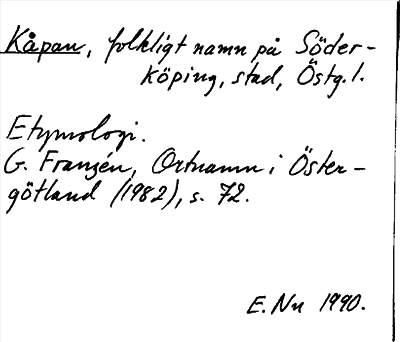 Kåpan, folkligt namn på Söder-
köping, stad, Östg. l.
Etymologi.
G. Franzén, Ortnamn i Öster-
götland (1982), s. 72.
E. Nn 1990.